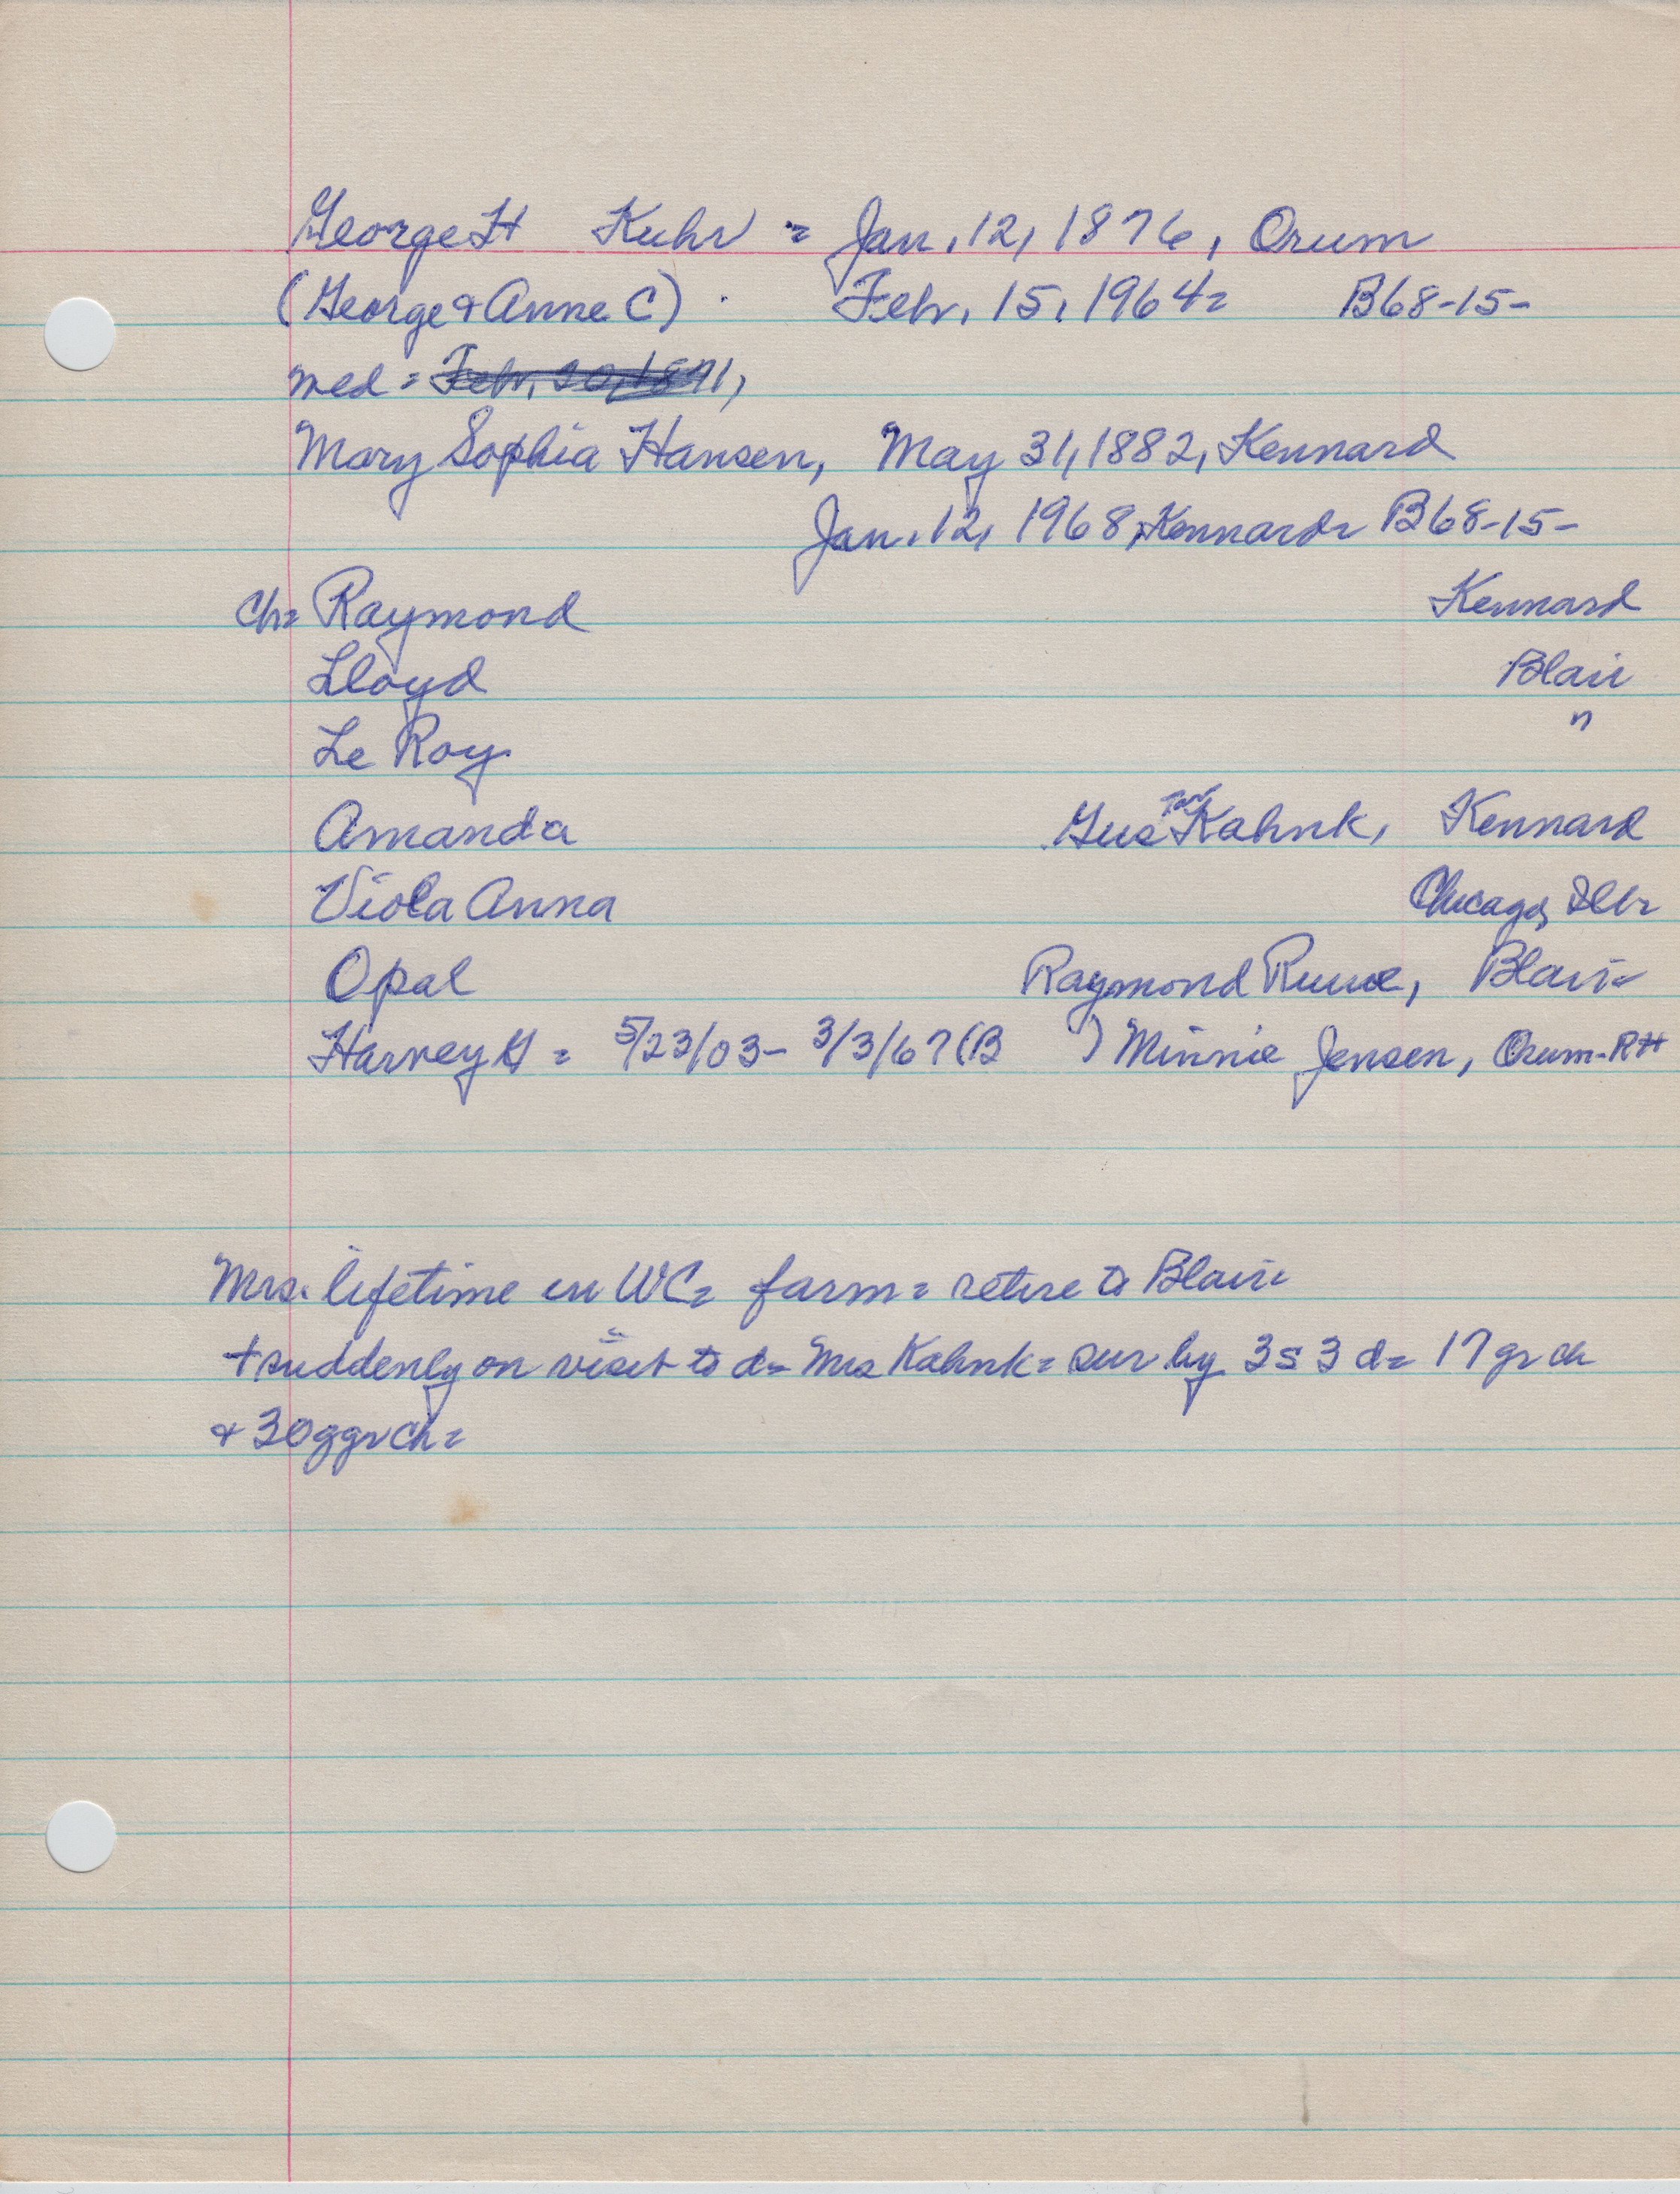 George H Kuhr = Jan. 12, 1876, Orum
(George & Anne C) . Febr. 15, 1964= B68-15-
med = Febr. 20, 1891,
Mary Sophia Hansen, May 31, 1882, Kennard
Jan. 12, 1968, Kennard= B68-15-
Ch= Raymond Kennard
Lloyd Blair
Le Roy "
Amanda Gus Kahnk, Kennard
Viola Anna Chicago, Ill=
Opal Raymond Blair=
Harvey G = 5/23/03- 3/3/67 (B ) Minnie Jensen, Orum-RH
Mrs. lifetime in WC= farm= retire to Blair=
+suddenly on visit to d= Mrs Kahnk= sur by 3s 3d= 17 gr ch
& 30 ggr ch=